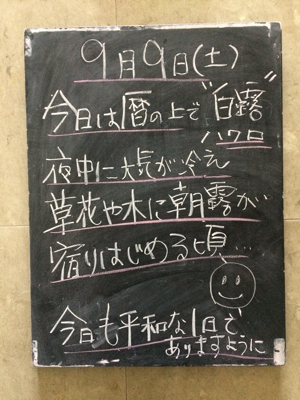 9月9日(土)
今日は暦の上で"白露"
ハクロ
夜中に大気が冷え
草花や木に朝露が
宿りはじめる頃…
今日も平和な1日で
ありますように